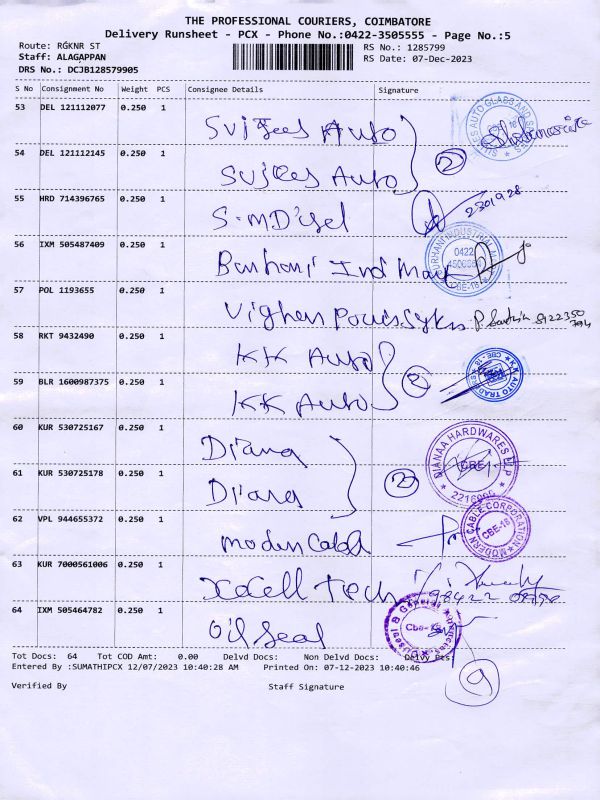 THE PROFESSIONAL COURIERS, COIMBATORE
Delivery Runsheet - PCX - Phone No.:0422-3505555 - Page No.:5
Route: RGKNR ST RS No.: 1285799
Staff: ALAGAPPAN RS Date: 07-Dec-2023
DRS No.: DCJB128579905
S No Consignment No Weight PCS Consignee Details Signature
53 DEL 121112077 0.250 1 Auto
54 DEL 121112145 0.250 1 Auto
2
55 HRD 714396765 0.250 1
56 IXM 505487409 0.250 1 Ind Mart
0422
CBE-18
57 POL 1193655 0.250 1
58 RKT 9432490 0.250 1 KK Auto
59 BLR 1600987375 0.250 1 KK Auto
2
K.K AUTO TRADERS CBE - 18
60 KUR 530725167 0.250 1 Diana
61 KUR 530725178 0.250 1 Diana
2
DIANAA HARDWARES LLP CBE-1
62 VPL 944655372 0.250 1 Modern Cable
MODERN CABLE CORPORATION CBE-18
63 KUR 7000561006 0.250 1 Tech
64 IXM 505464782 0.250 1 Oil Seal
9
Tot Docs: 64 Tot COD Amt: 0.00 Delvd Docs: Non Delvd Docs: Delvy Pts
Entered By :SUMATHIPCX 12/07/2023 10:40:28 AM Printed On: 07-12-2023 10:40:46
Verified By Staff Signature